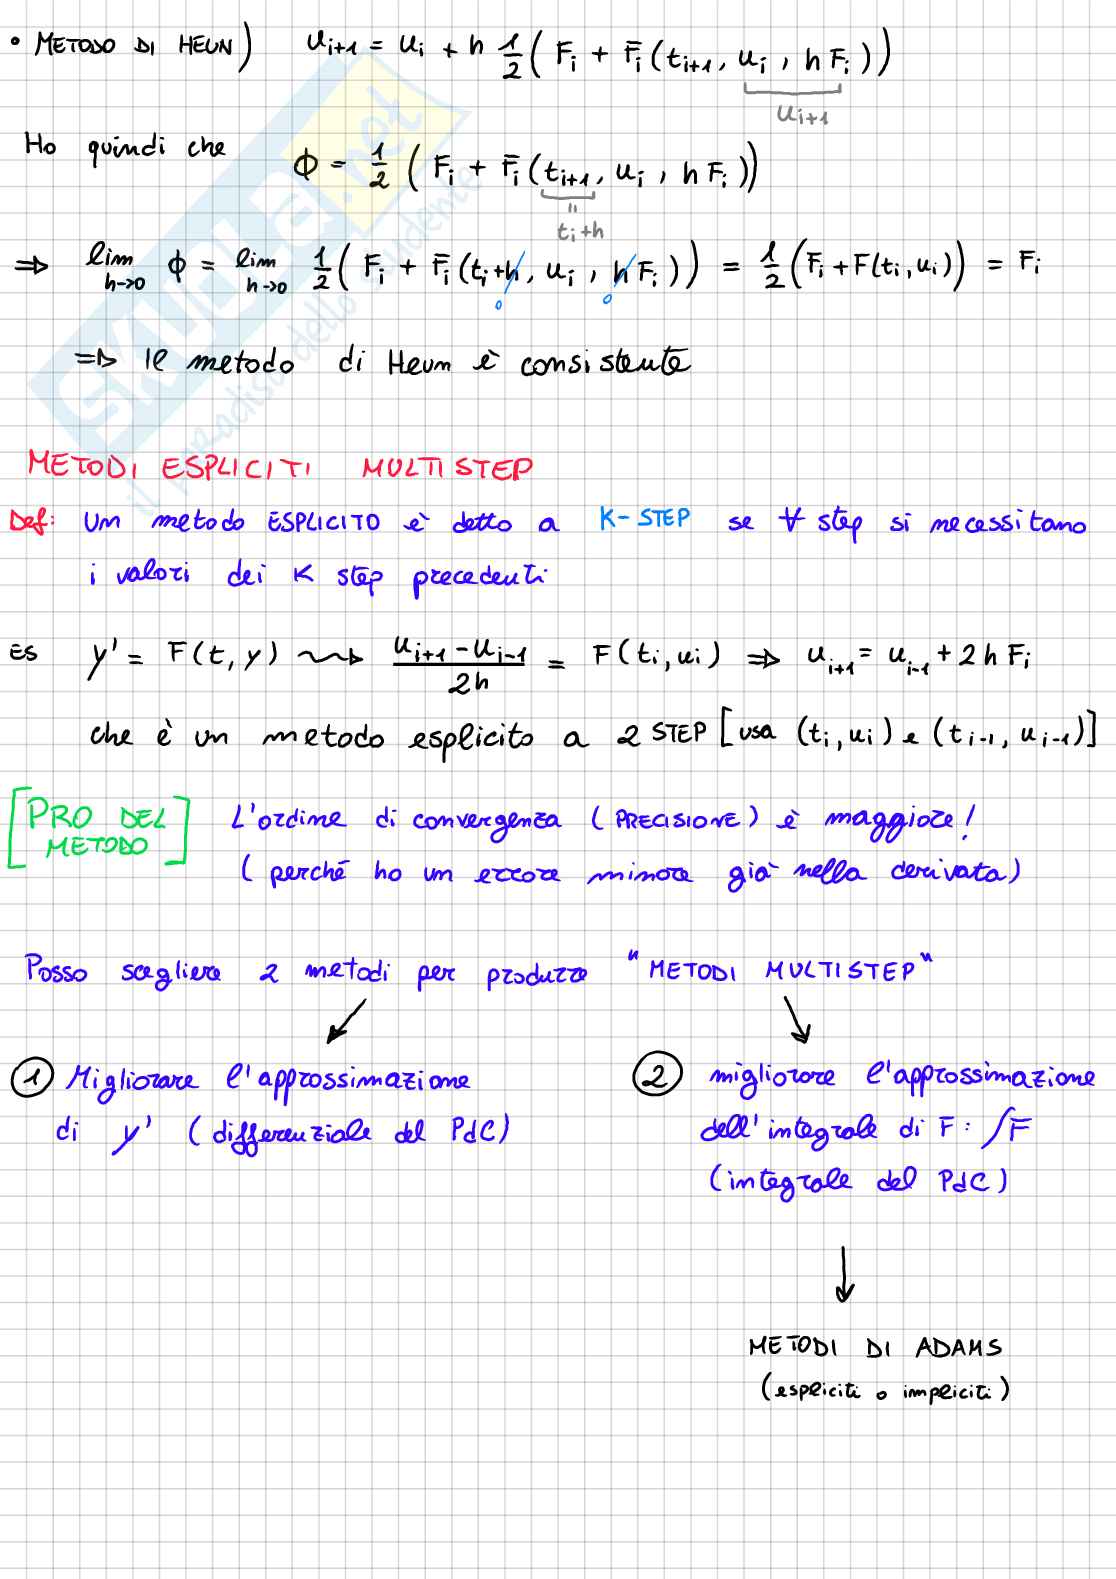 • METODO DI HEUN) u_{i+1} = u_i + h 1/2 ( F_i + F_i (t_{i+1}, u_i , h F_i ))
u_{i+1}
Ho quindi che ϕ = 1/2 ( F_i + F_i (t_{i+1}, u_i , h F_i ))
=
t_i+h
⇒ lim_{h→0} ϕ = lim_{h→0} 1/2 ( F_i + F_i (t_i+h, u_i , h F_i )) = 1/2 (F_i + F(t_i, u_i)) = F_i
0 0
⇒ Il metodo di Heun è consistente
METODI ESPLICITI MULTISTEP
Def: Un metodo ESPLICITO è detto a K-STEP se ∀ step si necessitano
i valori dei K step precedenti
ES y' = F(t, y) ⇝ (u_{i+1} - u_{i-1})/2h = F(t_i, u_i) ⇒ u_{i+1} = u_{i-1} + 2h F_i
che è un metodo esplicito a 2 STEP [usa (t_i, u_i) e (t_{i-1}, u_{i-1})]
[PRO DEL
METODO] L'ordine di convergenza (PRECISIONE) è maggiore!
( perché ho un errore minore già nella derivata)
Posso scegliere 2 metodi per produrre "METODI MULTISTEP"
① Migliorare l'approssimazione
di y' ( differenziale del PdC)
② migliorare l'approssimazione
dell'integrale di F: ∫F
(integrale del PdC)
METODI DI ADAMS
(espliciti o impliciti)
SKUOLA.net
il paradiso dello studente